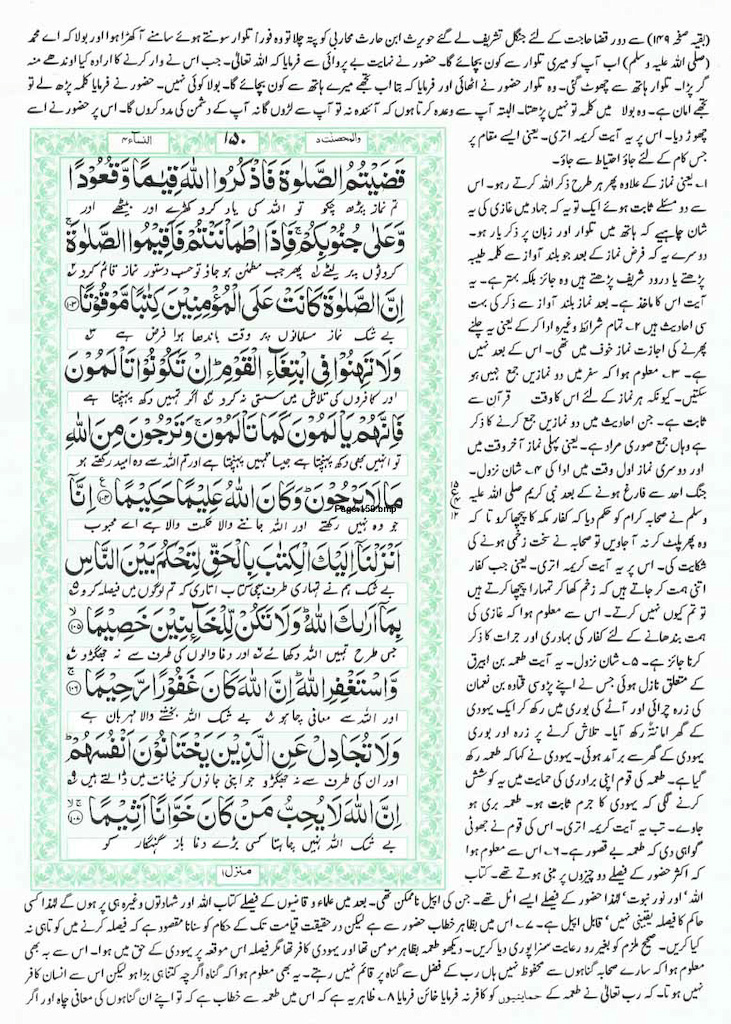 (بقیہ صفحہ ۱۴۹) سے دور قضا حاجت کے لئے جنگل تشریف لے گئے حویرث ابن حارث محاربی کو پتہ چلا تو وہ فوراً تلوار سونتے ہوئے سامنے آ کھڑا ہوا اور بولا کہ اے محمد
(صلی اللہ علیہ وسلم) اب آپ کو میری تلوار سے کون بچائے گا۔ حضور نے نہایت بے پروائی سے فرمایا کہ اللہ تعالیٰ۔ جب اس نے وار کرنے کا ارادہ کیا اوندھے منہ
گر پڑا۔ تلوار ہاتھ سے چھوٹ گئی۔ وہ تلوار حضور نے اٹھائی اور فرمایا کہ بتا اب تجھے میرے ہاتھ سے کون بچائے گا۔ بولا کوئی نہیں۔ حضور نے فرمایا کلمہ پڑھ لے تو
تجھے امان ہے۔ وہ بولا میں کلمہ تو نہیں پڑھتا۔ البتہ آپ سے وعدہ کرتا ہوں کہ آئندہ نہ تو آپ سے لڑوں گا نہ آپ کے دشمن کی مدد کروں گا۔ اس پر حضور نے اسے
چھوڑ دیا۔ اس پر یہ آیت کریمہ اتری۔ یعنی ایسے مقام پر
جس کام کے لئے جاؤ احتیاط سے جاؤ۔
۱۔ یعنی نماز کے علاوہ پھر ہر طرح ذکر اللہ کرتے رہو۔ اس
سے دو مسئلے ثابت ہوئے ایک تو یہ کہ جہاد میں غازی کی یہ
شان چاہیے کہ ہاتھ میں تلوار اور زبان پر ذکر یار ہو۔
دوسرے یہ کہ فرض نماز کے بعد جو بلند آواز سے کلمہ طیبہ
پڑھتے یا درود شریف پڑھتے ہیں وہ جائز بلکہ بہتر ہے۔ یہ
آیت اس کا ماخذ ہے۔ بعد نماز بلند آواز سے ذکر کی بہت
سی احادیث ہیں ۲۔ تمام شرائط وغیرہ ادا کر کے یعنی یہ چلنے
پھرنے کی اجازت نماز خوف میں تھی۔ اس کے بعد نہیں
ہے۔ ۳۔ معلوم ہوا کہ سفر میں دو نمازیں جمع نہیں ہو
سکتیں۔ کیونکہ ہر نماز کے لئے اس کا وقت قرآن سے
ثابت ہے۔ جن احادیث میں دو نمازیں جمع کرنے کا ذکر
ہے وہاں جمع صوری مراد ہے۔ یعنی پہلی نماز آخر وقت میں
اور دوسری نماز اول وقت میں ادا کی ۴۔ شان نزول۔
جنگ احد سے فارغ ہونے کے بعد نبی کریم صلی اللہ علیہ
وسلم نے صحابہ کرام کو حکم دیا کہ کفار مکہ کا پیچھا کرو تا کہ
وہ پھر پلٹ کر نہ آ جاویں تو صحابہ نے سخت زخمی ہونے کی
شکایت کی۔ اس پر یہ آیت کریمہ اتری۔ یعنی جب کفار
اتنی ہمت کر جاتے ہیں کہ زخم کھا کر تمہارا پیچھا کرتے ہیں
تو تم کیوں نہیں کرتے۔ اس سے معلوم ہوا کہ غازی کی
ہمت بندھانے کے لئے کفار کی بہادری اور جرات کا ذکر
کرنا جائز ہے۔ ۵۔ شان نزول۔ یہ آیت طعمہ بن ابیرق
کے متعلق نازل ہوئی جس نے اپنے پڑوسی قتادہ بن نعمان
کی زرہ چرائی اور آٹے کی بوری میں رکھ کر ایک یہودی
کے گھر امانتہ رکھ آیا۔ تلاش کرنے پر زرہ اور بوری
یہودی کے گھر سے برآمد ہوئی۔ یہودی نے کہا کہ طعمہ رکھ
گیا ہے۔ طعمہ کی قوم اپنی برادری کی حمایت میں یہ کوشش
کرنے لگی کہ یہودی کا جرم ثابت ہو۔ طعمہ بری ہو
جاوے۔ تب یہ آیت کریمہ اتری۔ اس کی قوم نے جھوٹی
گواہی دی کہ طعمہ بے قصور ہے۔ ۶۔ اس سے معلوم ہوا
کہ اکثر حضور کے فیصلے دو چیزوں پر مبنی ہوتے تھے۔ کتاب
اللہ' اور نور نبوت' لہذا حضور کے فیصلے ایسے اٹل تھے۔ جن کی اپیل ناممکن تھی۔ بعد میں علماء و قاضیوں کے فیصلے کتاب اللہ اور شہادتوں وغیرہ ہی پر ہوں گے لہذا کسی
حاکم کا فیصلہ یقینی نہیں' قابل اپیل ہے۔ ۷۔ اس میں بظاہر خطاب حضور سے ہے لیکن در حقیقت قیامت تک کے حکام کو سنانا مقصود ہے کہ فیصلہ کرنے میں کوتاہی نہ
کیا کریں۔ صحیح ملزم کو بغیر رو رعایت سزا پوری دیا کریں۔ دیکھو طعمہ بظاہر مومن تھا اور یہودی کافر تھا مگر فیصلہ اس موقعہ پر یہودی کے حق میں ہوا۔ اس سے یہ بھی
معلوم ہوا کہ سارے صحابہ گناہوں سے محفوظ نہیں ہاں رب کے فضل سے گناہ پر قائم نہیں رہتے۔ یہ بھی معلوم ہوا کہ گناہ اگرچہ کتنا ہی بڑا ہو لیکن اس سے انسان کافر
نہیں ہوتا۔ کہ رب تعالیٰ نے طعمہ کے حمایتیوں کو کافر نہ فرمایا خائن فرمایا ۸۔ ظاہر یہ ہے کہ اس میں طعمہ سے خطاب ہے کہ تو اپنے ان گناہوں کی معافی چاہ اور اگر
والمحصنت ۵ ۱۵۰ النساء ۴
قَضَيْتُمُ الصَّلٰوةَ فَاذْكُرُوا اللّٰهَ قِيٰمًا وَّقُعُوْدًا
تم نماز پڑھ چکو تو اللہ کی یاد کرو کھڑے اور بیٹھے اور
وَّعَلٰى جُنُوْبِكُمْ ۚ فَاِذَا اطْمَاْنَنْتُمْ فَاَقِيْمُوا الصَّلٰوةَ ۚ
کروٹوں پر لیٹے ۱ پھر جب مطمئن ہو جاؤ تو حسب دستور نماز قائم کرو ۲
اِنَّ الصَّلٰوةَ كَانَتْ عَلَى الْمُؤْمِنِيْنَ كِتٰبًا مَّوْقُوْتًا ۝۱۰۳
بے شک نماز مسلمانوں پر وقت باندھا ہوا فرض ہے ۳
وَلَا تَهِنُوْا فِى ابْتِغَآءِ الْقَوْمِ ؕ اِنْ تَكُوْنُوْا تَاْلَمُوْنَ
اور کافروں کی تلاش میں سستی نہ کرو ۴ اگر تمہیں دکھ پہنچتا ہے
فَاِنَّهُمْ يَاْلَمُوْنَ كَمَا تَاْلَمُوْنَ ۚ وَتَرْجُوْنَ مِنَ اللّٰهِ
تو انہیں بھی دکھ پہنچتا ہے جیسا تمہیں پہنچتا ہے اور تم اللہ سے وہ امید رکھتے ہو
مَا لَا يَرْجُوْنَ ؕ وَكَانَ اللّٰهُ عَلِيْمًا حَكِيْمًا ۝۱۰۴ اِنَّاۤ
Page-150.bmp
جو وہ نہیں رکھتے اور اللہ جاننے والا حکمت والا ہے اے محبوب
اَنْزَلْنَاۤ اِلَيْكَ الْكِتٰبَ بِالْحَقِّ لِتَحْكُمَ بَيْنَ النَّاسِ
بے شک ہم نے تمہاری طرف سچی کتاب اتاری کہ تم لوگوں میں فیصلہ کرو ۵
بِمَاۤ اَرٰىكَ اللّٰهُ ؕ وَلَا تَكُنْ لِّلْخَآئِنِيْنَ خَصِيْمًا ۝۱۰۵
جس طرح تمہیں اللہ دکھائے ۶ اور دغا والوں کی طرف سے نہ جھگڑو ۷
وَّاسْتَغْفِرِ اللّٰهَ ؕ اِنَّ اللّٰهَ كَانَ غَفُوْرًا رَّحِيْمًا ۝۱۰۶
اور اللہ سے معافی چاہو ۸ بے شک اللہ بخشنے والا مہربان ہے
وَلَا تُجَادِلْ عَنِ الَّذِيْنَ يَخْتَانُوْنَ اَنْفُسَهُمْ ؕ
اور ان کی طرف سے نہ جھگڑو جو اپنی جانوں کو خیانت میں ڈالتے ہیں
اِنَّ اللّٰهَ لَا يُحِبُّ مَنْ كَانَ خَوَّانًا اَثِيْمًا ۝۱۰۷
بے شک اللہ نہیں چاہتا کسی بڑے دغا باز گنہگار کو
منزل ۱